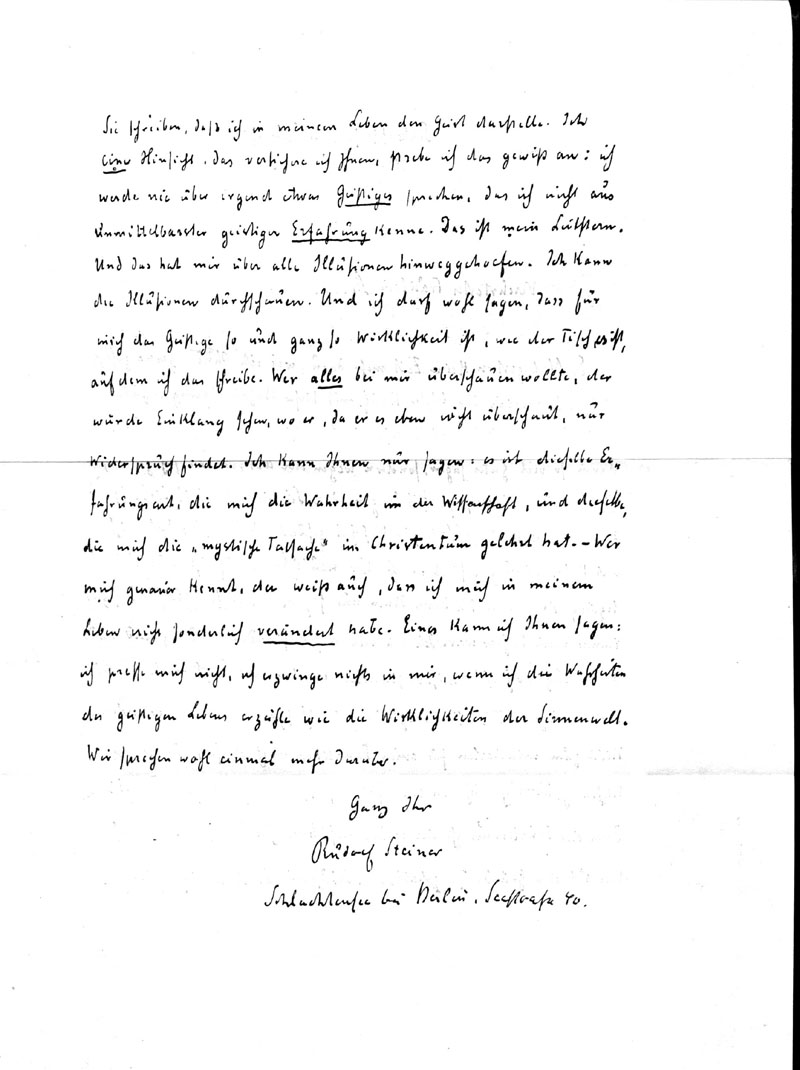 Sie schreiben, daß ich in meinem Leben den Geist darstelle. In
einer Hinsicht, das versichere ich Ihnen, strebe ich das gewiß an: ich
werde nie über irgend etwas Geistiges sprechen, das ich nicht aus
unmittelbarster geistiger Erfahrung kenne. Das ist mein Leitstern.
Und das hat mir über alle Illusionen hinweggeholfen. Ich kann
die Illusionen durchschauen. Und ich darf wohl sagen, dass für
mich das Geistige so und ganz so Wirklichkeit ist, wie der Tisch es ist,
auf dem ich das schreibe. Wer alles bei mir überschauen wollte, der
würde Einklang sehen, wo er, da er es eben nicht überschaut, nur
Widerspruch findet. Ich kann Ihnen nur sagen: es ist dieselbe Er„
fahrungsart, die mich die Wahrheit in der Wissenschaft, und dieselbe,
die mich die „mystische Tatsache" im Christentum gelehrt hat. – Wer
mich genauer kennt, der weiß auch, dass ich mich in meinem
Leben nicht sonderlich verändert habe. Eines kann ich Ihnen sagen:
ich presse mich nicht, ich erzwinge nichts in mir, wenn ich die Wahrheiten
des geistigen Lebens erzähle wie die Wirklichkeiten der Sinnenwelt.
Wir sprechen wohl einmal mehr darüber.
Ganz Ihr
Rudolf Steiner
Schlachtensee bei Berlin, Seestraße 40.